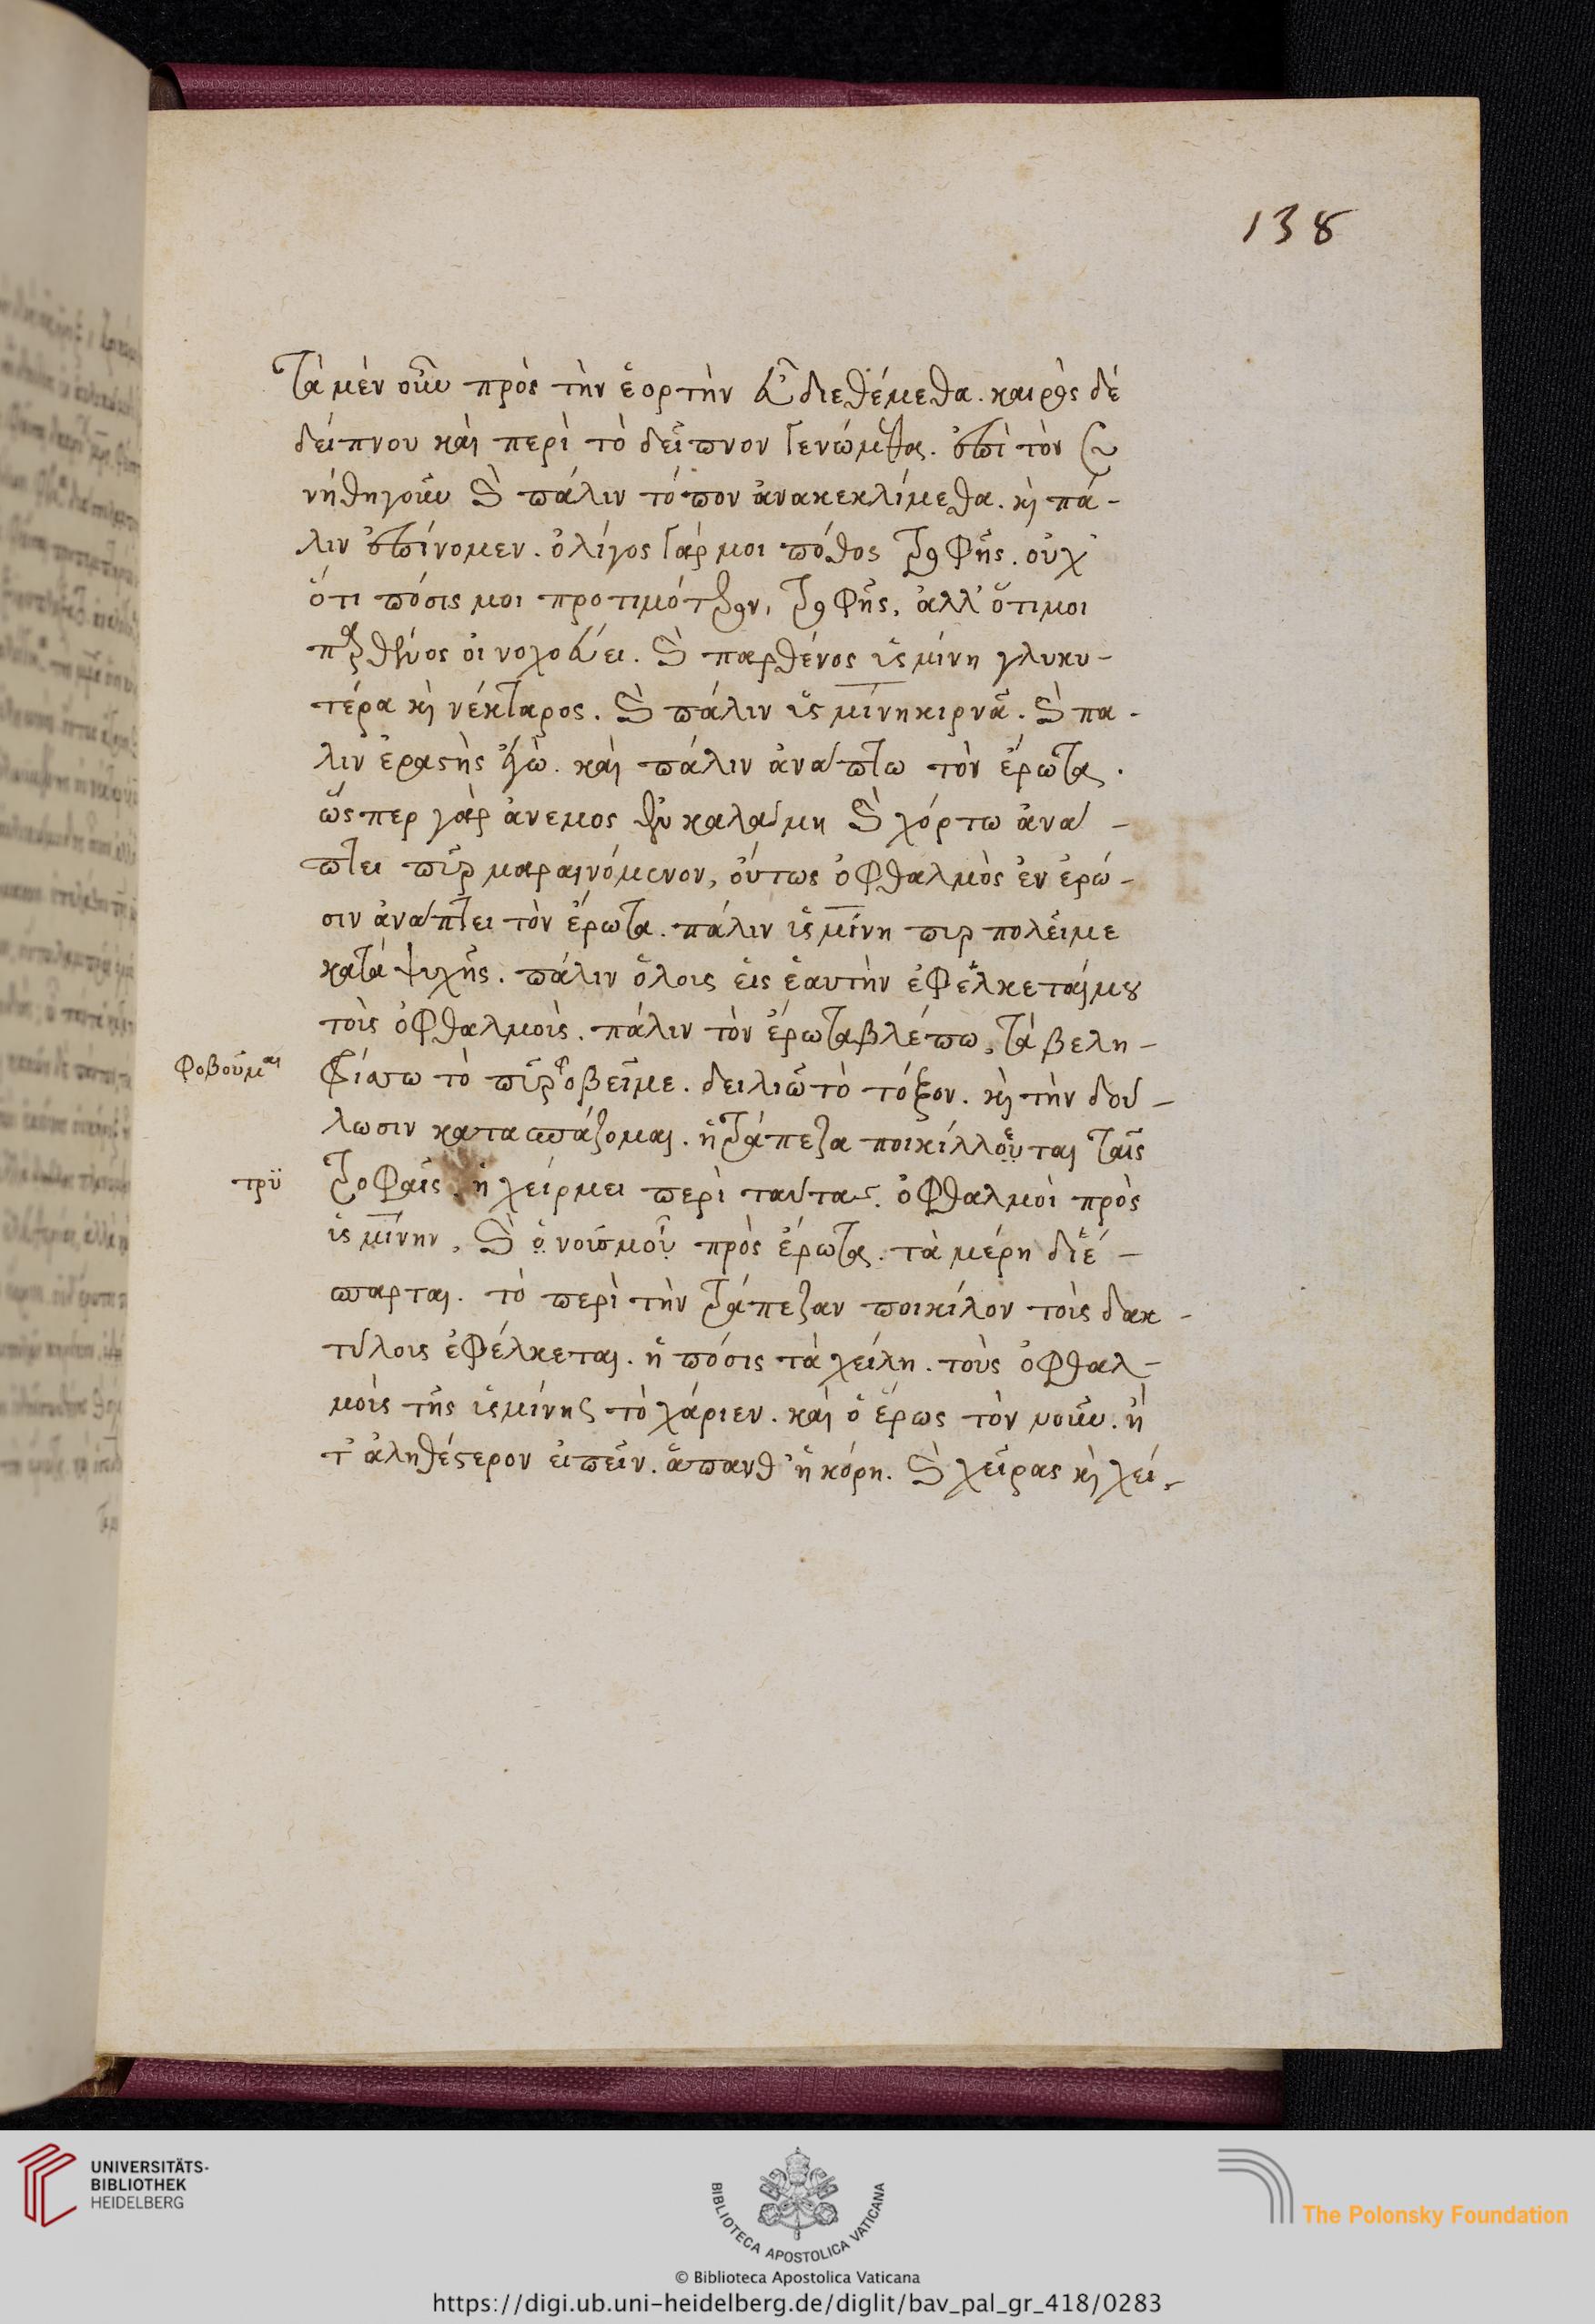 138
Τὰ μὲν οὖν πρὸς τὴν ἑορτὴν εὖ διεθέμεθα. καιρὸς δὲ
δείπνου καὶ περὶ τὸ δεῖπνον γενώμεθα. ἐπὶ τὸν συ
νήθη γοῦν καὶ πάλιν τόπον ἀνακεκλίμεθα. κὶ πά-
λιν ἐπίνομεν. ὀλίγος γάρ μοι πόθος τροφῆς. οὐχ'
ὅτι πόσις μοι προτιμότερον, τροφῆς, ἀλλ' ὅτι μοι
παρθένος οἰνοχοεύει. καὶ παρθένος ἰσμίνη γλυκυ-
τέρα κὶ νέκταρος. καὶ πάλιν ἰσμίνη κιρνᾶ. καὶ πα-
λιν ἐραστὴς ἐγώ. καὶ πάλιν ἀνάπτω τὸν ἔρωτα.
ὥσπερ γὰρ ἄνεμος ἐν καλάμη καὶ χόρτω ἀνά-
πτει πῦρ μαραινόμενον, οὕτως ὀφθαλμὸς ἐν ἐρῶ-
σιν ἀνάπτει τὸν ἔρωτα. πάλιν ἰσμίνη πυρπολεῖ με
κατὰ ψυχῆς. πάλιν ὅλοις εἰς ἑαυτὴν ἐφέλκεταί μου
τοῖς ὀφθαλμοῖς. πάλιν τὸν ἔρωτα βλέπω, τὰ βέλη-
φοβοῦμαι
τὸ πῦρ φοβεῖ με. δειλιῶ τὸ τόξον. κὶ τὴν δού-
λωσιν κατασπάζομαι. ἡ τράπεζα ποικίλλεται ταῖς
τρυ
τροφαῖς. ἡ χείρ μει περὶ ταύτας. ὀφθαλμοὶ πρὸς
ἰσμίνην, καὶ ὁ νοῦς μοῦ πρὸς ἔρωτα. τὰ μέρη διέ-
σπαρται. τὸ περὶ τὴν τράπεζαν ποικίλον τοῖς δακ-
τύλοις ἐφέλκεται. ἡ πόσις τὰ χείλη. τοὺς ὀφθαλ-
μοῖς τῆς ἰσμίνης τὸ χάριεν. καὶ ὁ ἔρως τὸν νοῦν. ἢ
τ' ἀληθέστερον εἰπεῖν. ἅπανθ' ἡ κόρη. καὶ χεῖρας κὶ χεί-
UNIVERSITÄTS-
BIBLIOTHEK
HEIDELBERG
BIBLIOTECA APOSTOLICA VATICANA
The Polonsky Foundation
© Biblioteca Apostolica Vaticana
https://digi.ub.uni-heidelberg.de/diglit/bav_pal_gr_418/0283